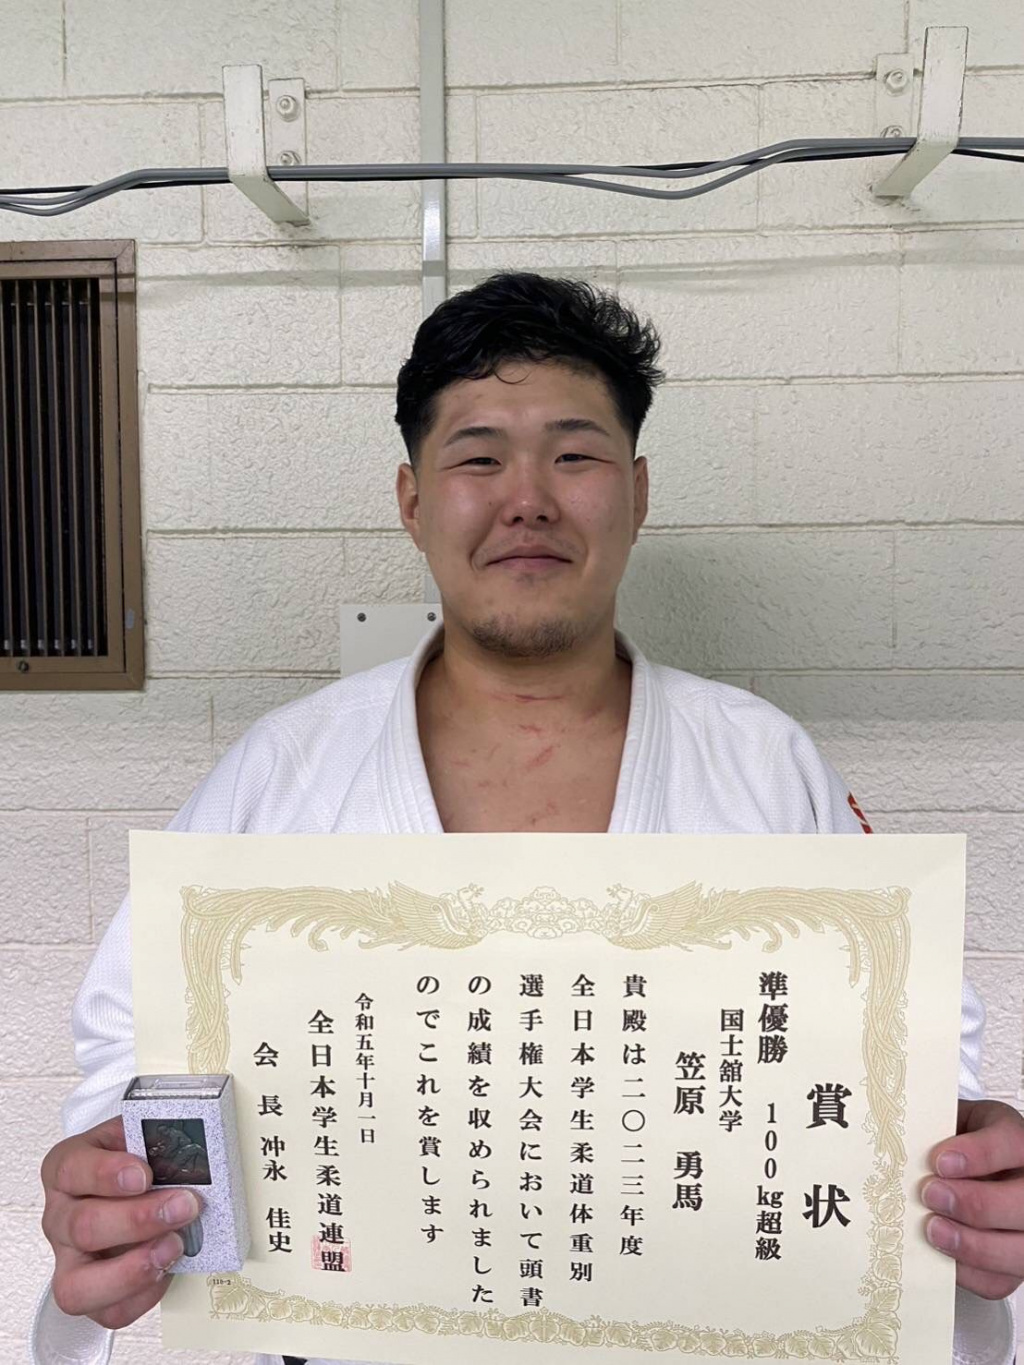 賞状
準優勝 100kg超級
国士舘大学
笠原 勇馬
貴殿は二〇二三年度
全日本学生柔道体重別
選手権大会において頭書
の成績を収められました
のでこれを賞します
令和五年十月一日
全日本学生柔道連盟
会長 冲永 佳史